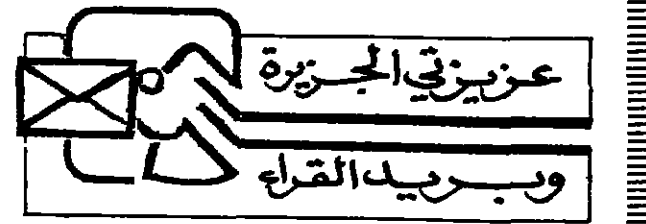 عزيزتي الجزيرة
وبريد القراء